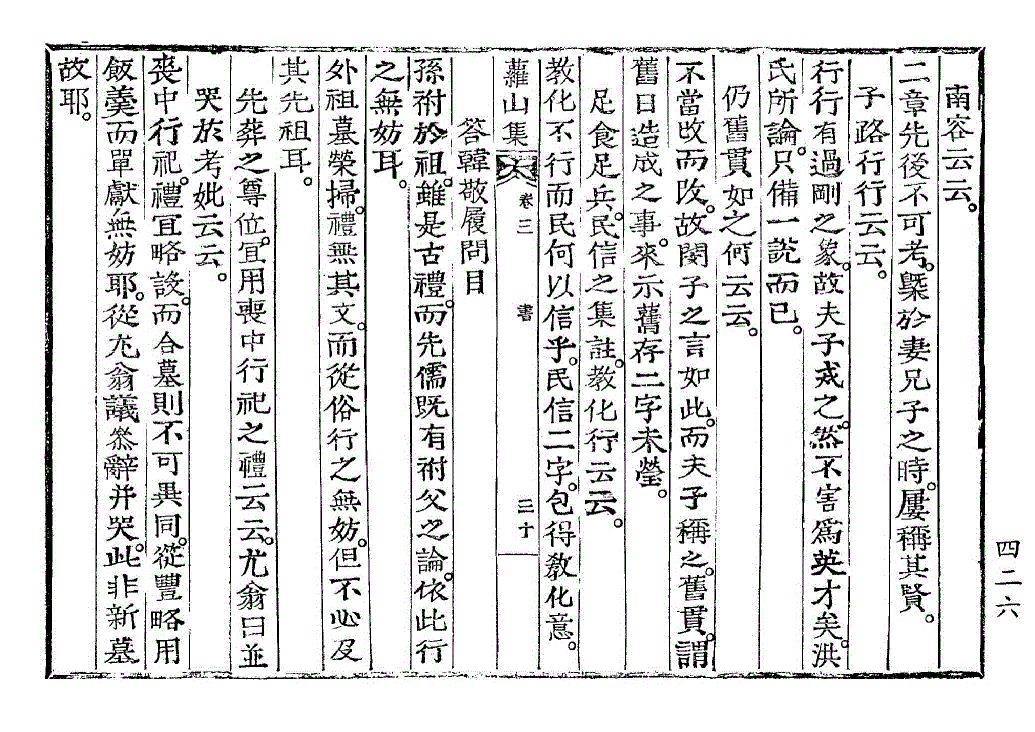 南容云云。
二章先後不可考。槩於妻兄子之時。屢稱其賢。
子路行行云云。
行行有過剛之象。故夫子戒之。然不害爲英才矣。洪
氏所論。只備一說而已。
仍舊貫如之何云云。
不當改而改。故閔子之言如此。而夫子稱之。舊貫。謂
舊日造成之事。來示舊存二字未瑩。
足食足兵。民信之集註。教化行云云。
教化不行而民何以信乎。民信二字。包得教化意。
蘿山集 卷三 書 三十
答韓敬履問目
孫祔於祖。雖是古禮。而先儒既有祔父之論。依此行
之無妨耳。
外祖墓榮掃。禮無其文。而從俗行之無妨。但不必及
其先祖耳。
先葬之尊位。宜用喪中行祀之禮云云。尤翁曰並
哭於考妣云云。
喪中行祀。禮宜略設。而合墓則不可異同。從豐略用
飯羹而單獻無妨耶。從尤翁議叅辭并哭。此非新墓
故耶。
四二六